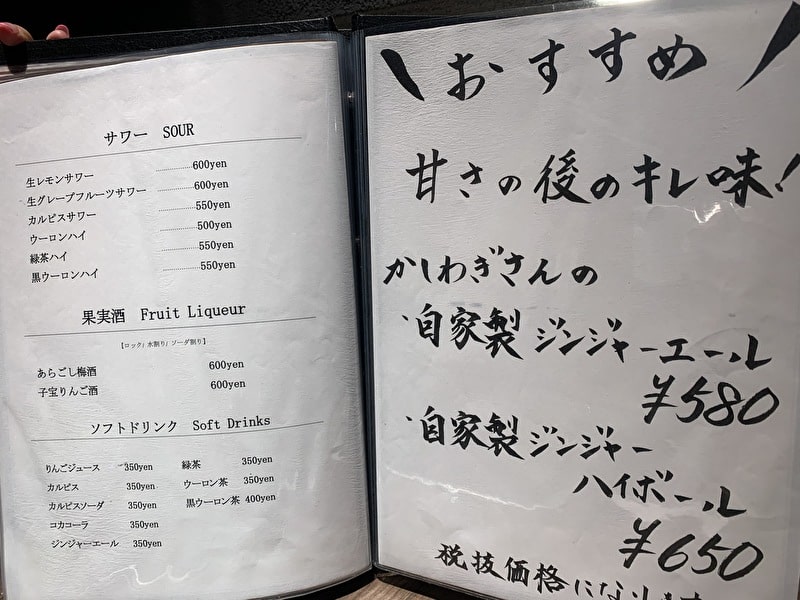 サワー SOUR
生レモンサワー 600yen
生グレープフルーツサワー 600yen
カルピスサワー 550yen
ウーロンハイ 500yen
緑茶ハイ 550yen
黒ウーロンハイ 550yen
果実酒 Fruit Liqueur
【ロック/ 水割り/ ソーダ割り】
あらごし梅酒 600yen
子宝りんご酒 600yen
ソフトドリンク Soft Drinks
りんごジュース 350yen 緑茶 350yen
カルピス 350yen ウーロン茶 350yen
カルピスソーダ 350yen 黒ウーロン茶 400yen
コカコーラ 350yen
ジンジャーエール 350yen
\おすすめ/
甘さの後のキレ味!
かしわぎさんの
・自家製ジンジャーエール
¥580
・自家製ジンジャー
ハイボール
¥650
税抜価格になります